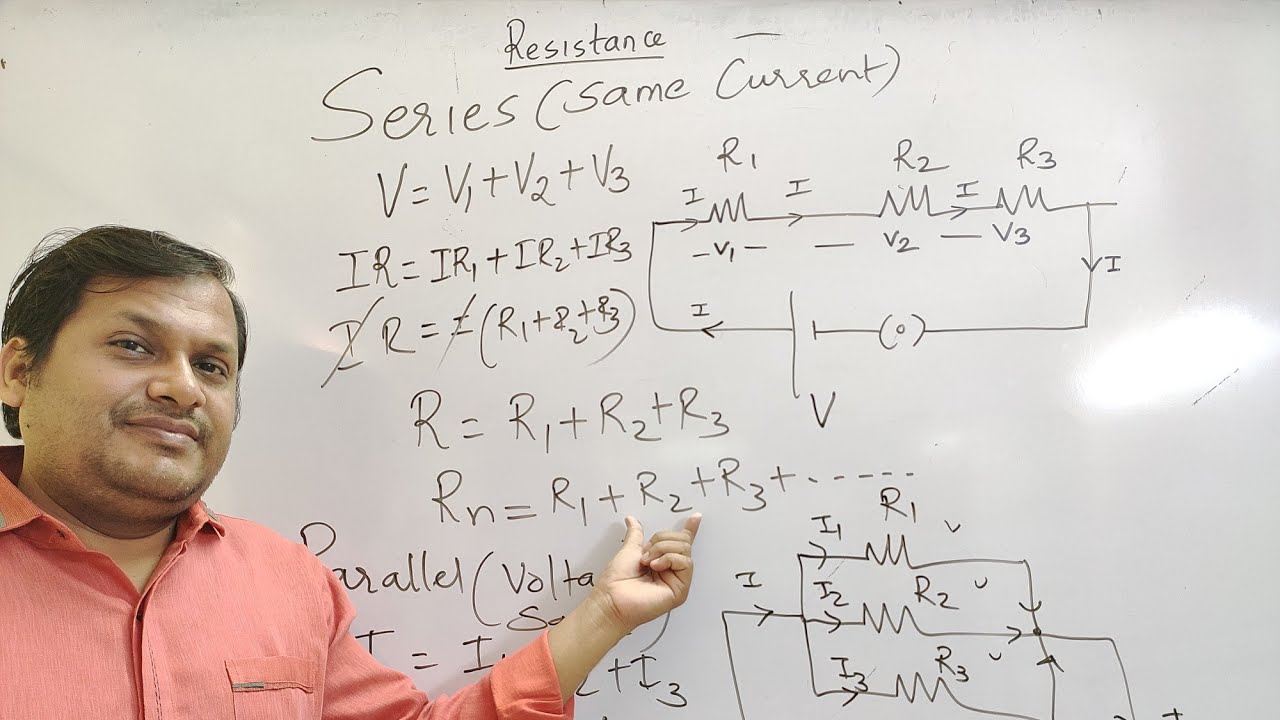 Resistance
Series (Same Current)
V = V1 + V2 + V3
IR = IR1 + IR2 + IR3
I R = I (R1 + R2 + R3)
R = R1 + R2 + R3
Rn = R1 + R2 + R3 + ......
R1 R2 R3
I I I
- V1 - — V2 — V3
I
I
V
Parallel (Volta
I = I + I3
R1
I1 V
I I2 R2 V
I3 R3 V